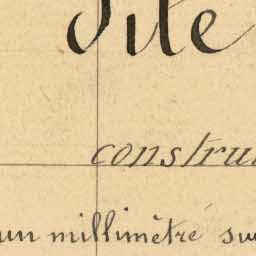 dite
constru
un millimètré su